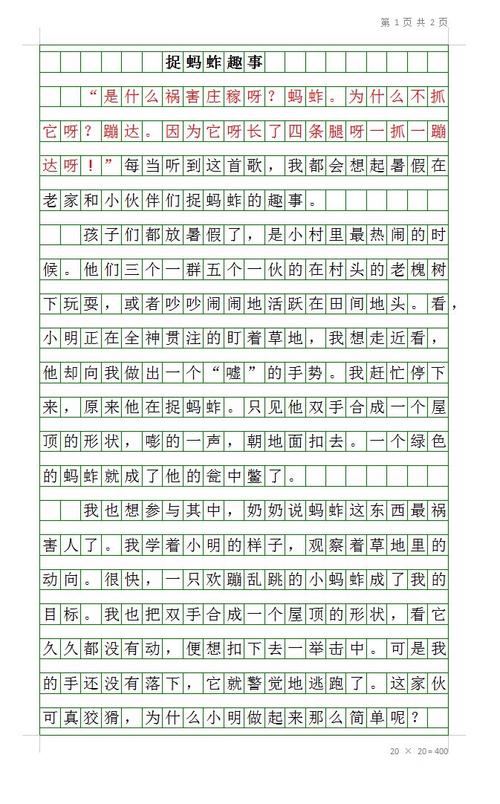 第 1 页 共 2 页
捉蚂蚱趣事
“是什么祸害庄稼呀？蚂蚱。为什么不抓
它呀？蹦达。因为它呀长了四条腿呀一抓一蹦
达呀！”每当听到这首歌，我都会想起暑假在
老家和小伙伴们捉蚂蚱的趣事。
孩子们都放暑假了，是小村里最热闹的时
候。他们三个一群五个一伙的在村头的老槐树
下玩耍，或者吵吵闹闹地活跃在田间地头。看，
小明正在全神贯注的盯着草地，我想走近看，
他却向我做出一个“嘘”的手势。我赶忙停下
来，原来他在捉蚂蚱。只见他双手合成一个屋
顶的形状，嘭的一声，朝地面扣去。一个绿色
的蚂蚱就成了他的瓮中鳖了。
我也想参与其中，奶奶说蚂蚱这东西最祸
害人了。我学着小明的样子，观察着草地里的
动向。很快，一只欢蹦乱跳的小蚂蚱成了我的
目标。我也把双手合成一个屋顶的形状，看它
久久都没有动，便想扣下去一举击中。可是我
的手还没有落下，它就警觉地逃跑了。这家伙
可真狡猾，为什么小明做起来那么简单呢？
20 × 20 = 400